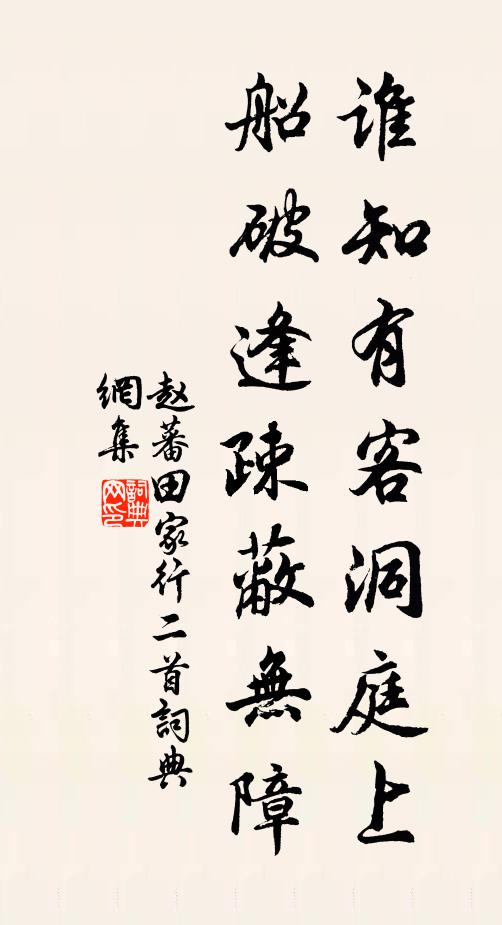 谁知有客洞庭上
船破逢疎蔽無障
赵蕃田家行二首詞典
網集
詞典
网印